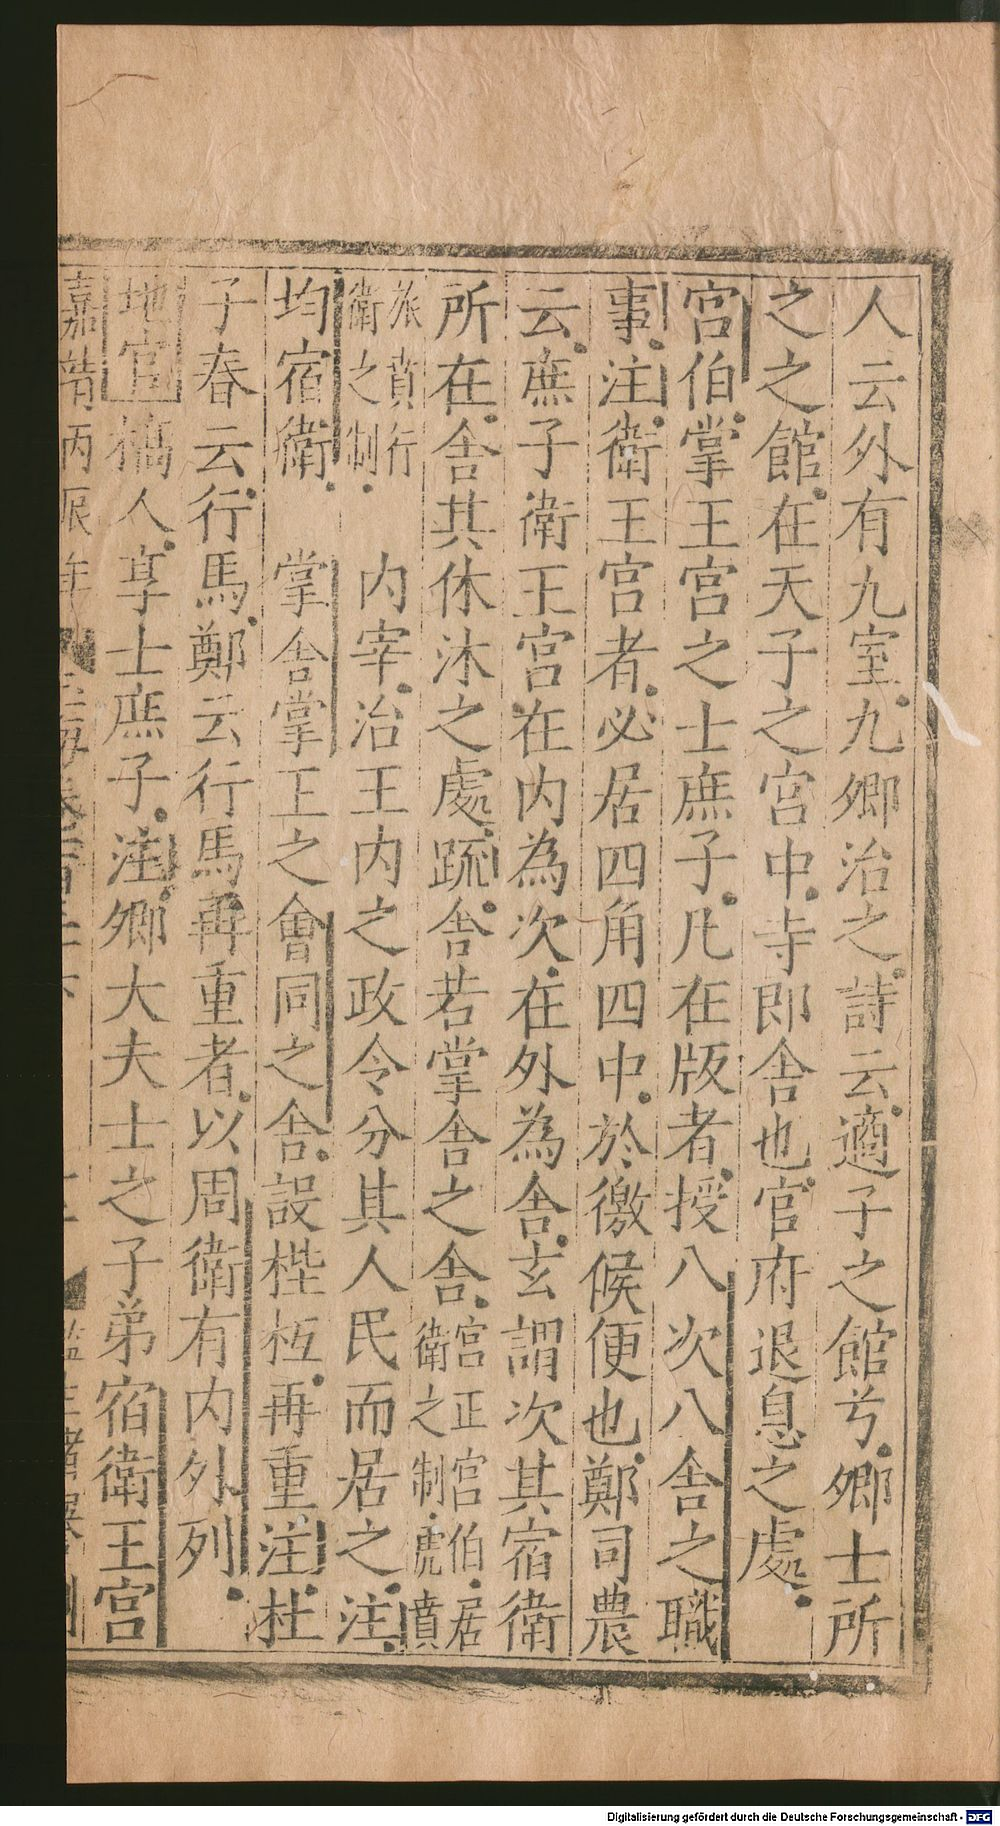 人云外有九室九卿治之詩云適子之館兮卿士所
之之館在天子之宮中寺即舍也官府退息之處
宮伯掌王宮之士庶子凡在版者授八次八舍之職
事注衛王宮者必居四角四中於徼候便也鄭司農
云庶子衛王宮在内為次在外為舍玄謂次其宿衛
所在舍其休沐之處疏舍若掌舍之舍宮正宮伯居衛之制虎賁
旅賁行衛之制 内宰治王内之政令分其人民而居之注
均宿衛 掌舍掌王之會同之舍設梐枑再重注杜
子春云行馬鄭云行馬再重者以周衛有内外列
地官槁人享士庶子注卿大夫士之子弟宿衛王宮
嘉靖丙辰年
Digitalisierung gefördert durch die Deutsche Forschungsgemeinschaft - DFG